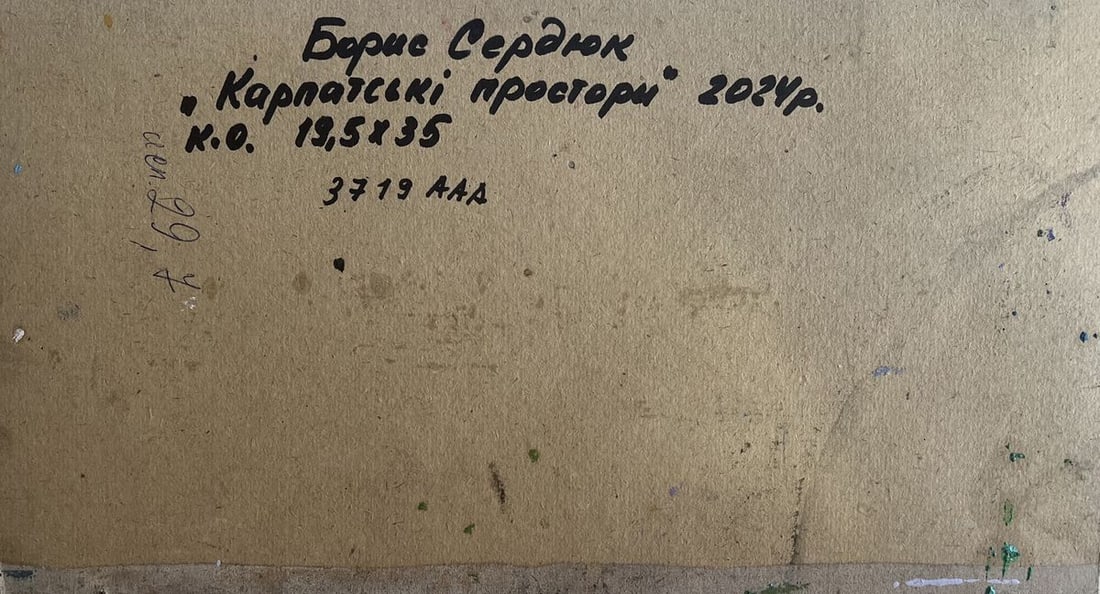 Борис Сердюк
„Карпатські простори" 2024р.
К.О. 19,5х35
3719 ААА
29,7